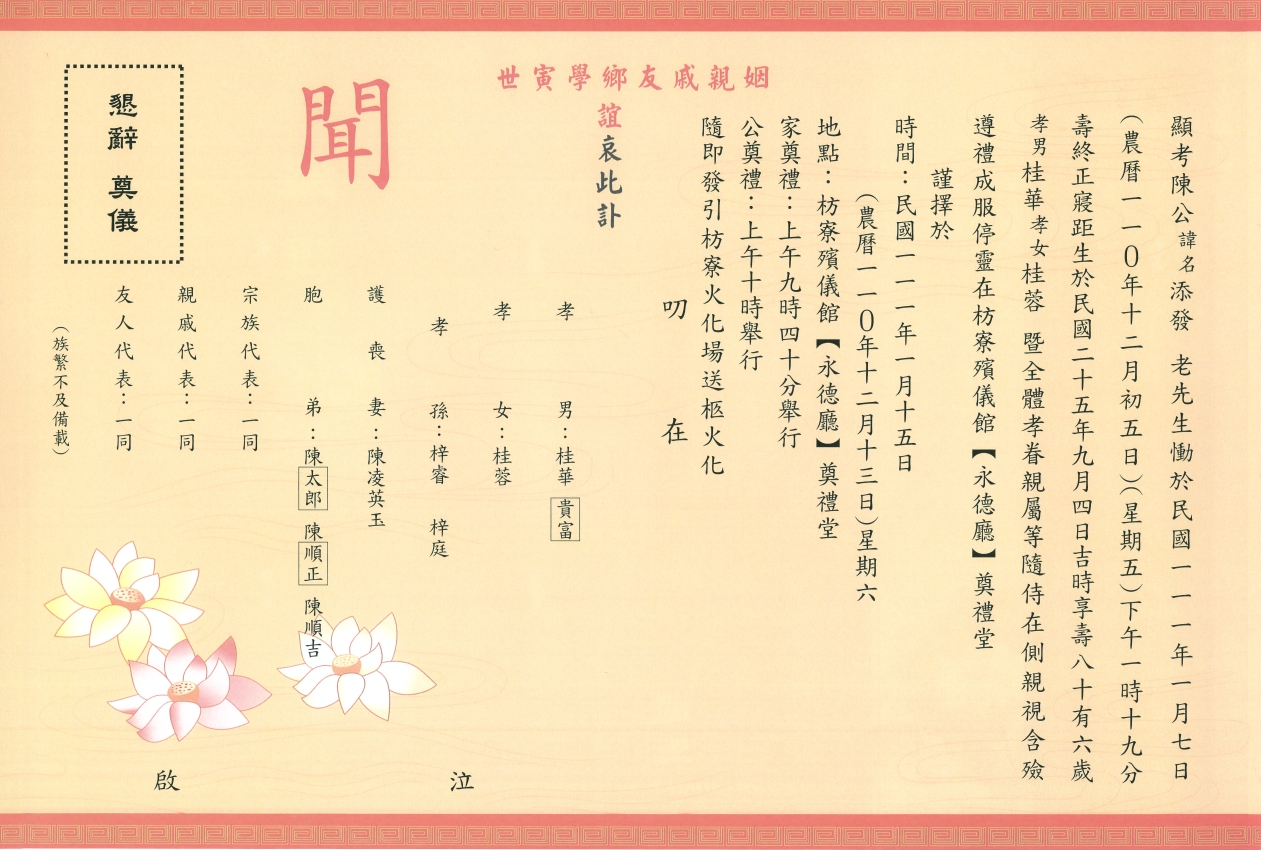 顯考陳公諱名添發 老先生慟於民國一一一年一月七日
(農曆一一0年十二月初五日)(星期五)下午一時十九分
壽終正寢距生於民國二十五年九月四日吉時享壽八十有六歲
孝男桂華孝女桂蓉 暨全體孝眷親屬等隨侍在側親視含殮
遵禮成服停靈在枋寮殯儀館【永德廳】奠禮堂
謹擇於
時間:民國一一一年一月十五日
(農曆一一0年十二月十三日)星期六
地點:枋寮殯儀館【永德廳】奠禮堂
家奠禮:上午九時四十分舉行
公奠禮:上午十時舉行
隨即發引枋寮火化場送柩火化
叨在
姻親戚友鄉學寅世
誼哀此訃
聞
孝男:桂華 貴富
孝女:桂蓉
孝孫:梓睿 梓庭
護喪妻:陳凌英玉
胞弟:陳太郎 陳順正 陳順吉
宗族代表:一同
親戚代表:一同
友人代表:一同
(族繁不及備載)
泣啟
懇辭 奠儀